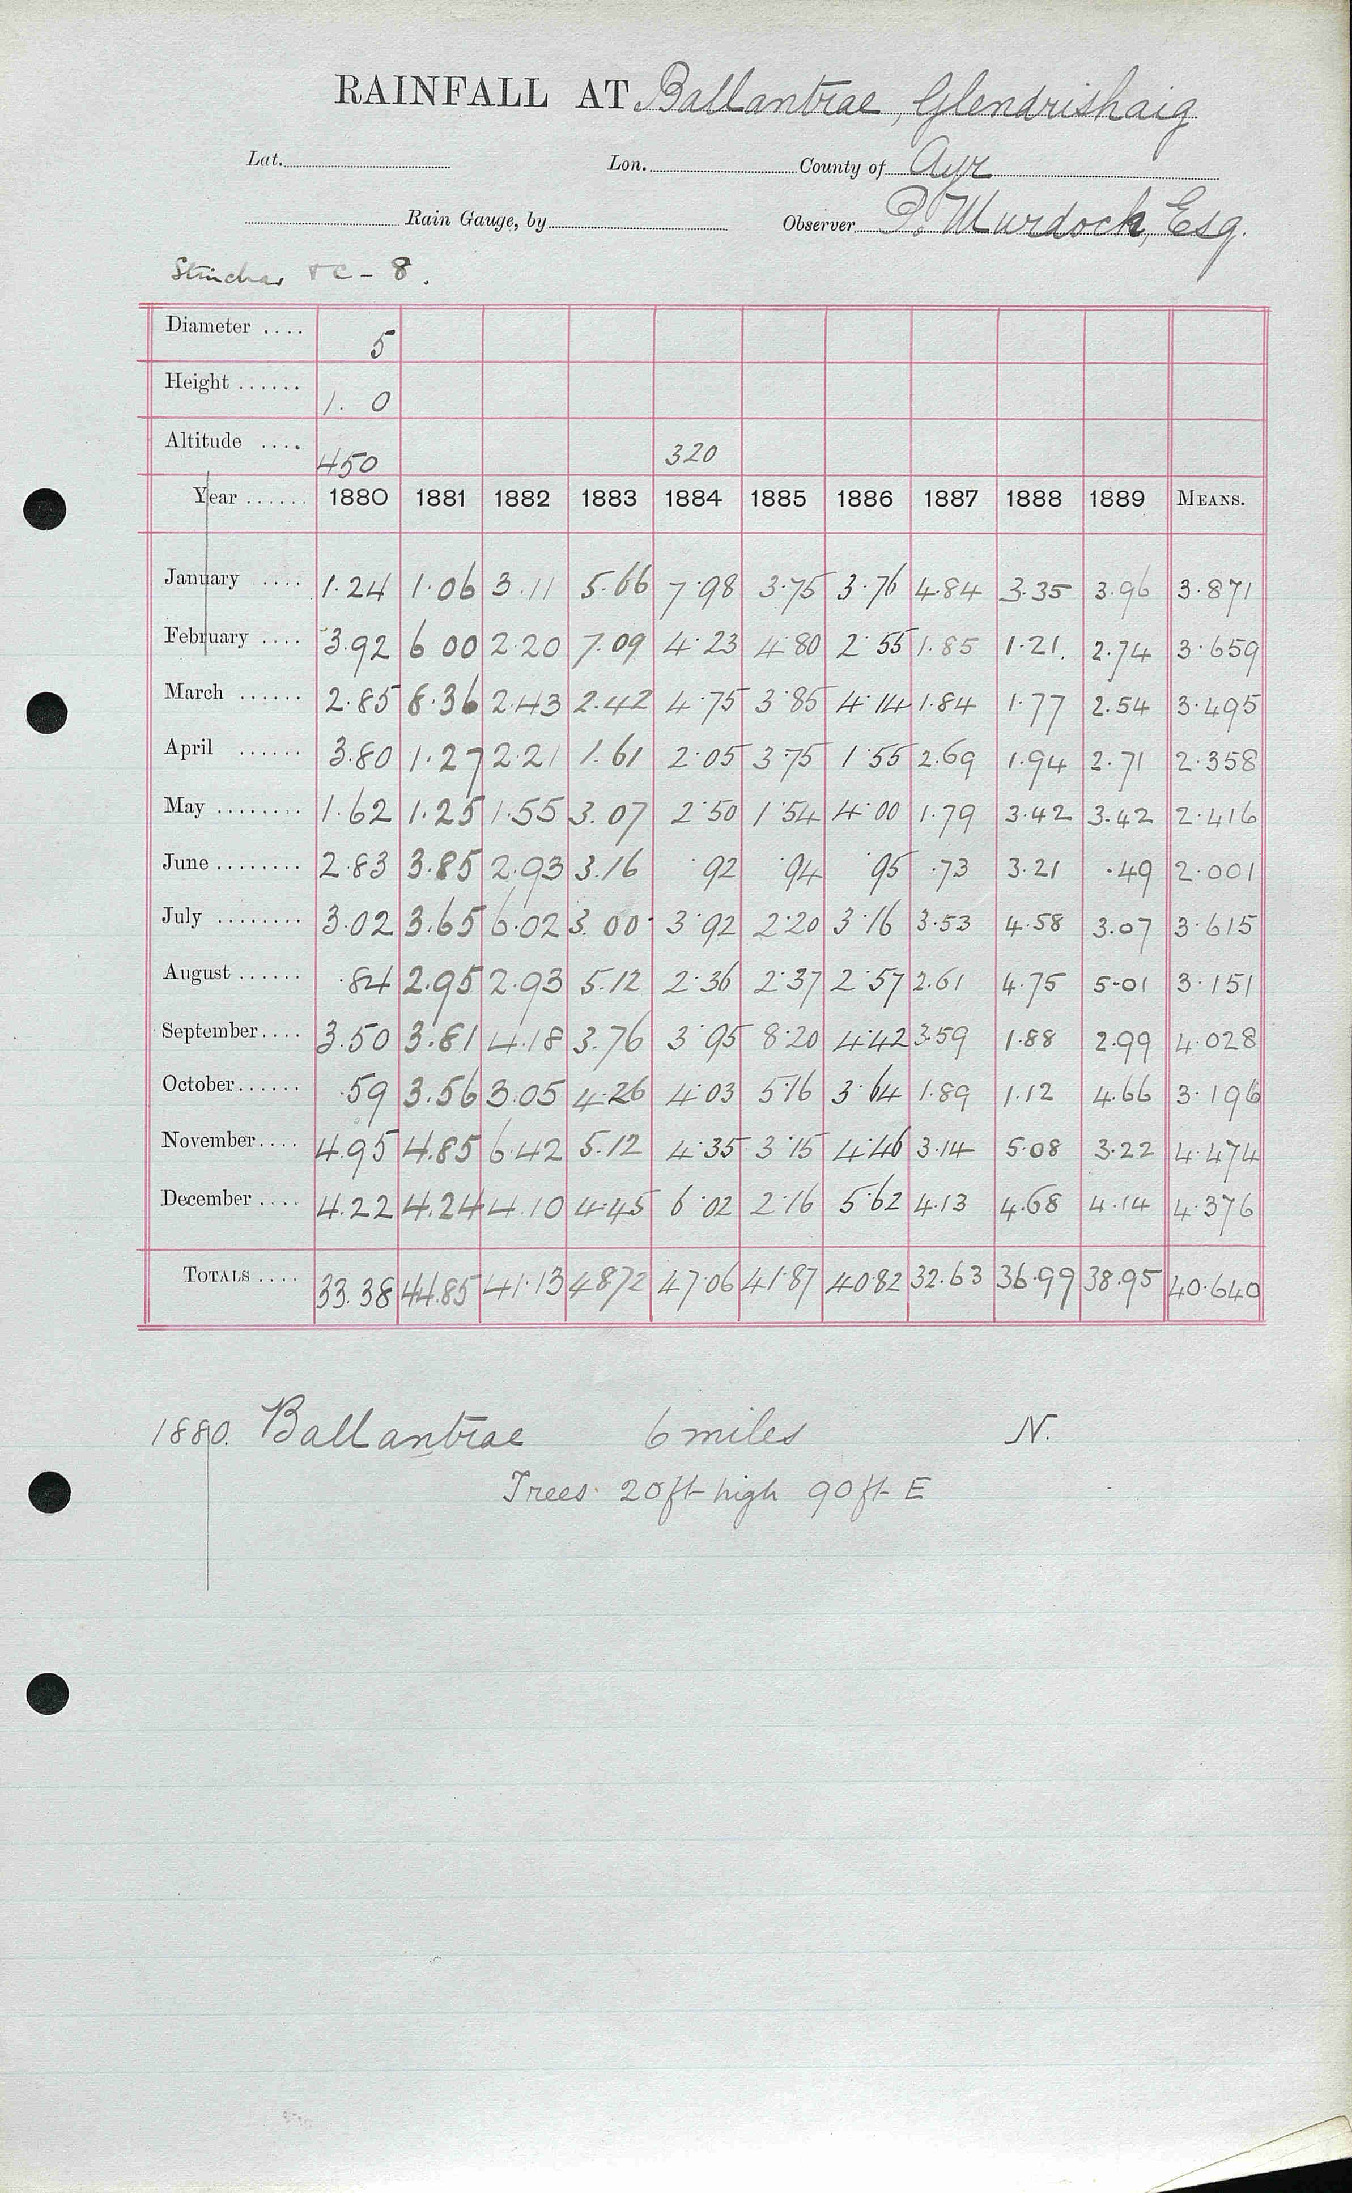 RAINFALL AT Ballantrae, Glendrishaig
Lat. Lon. County of Ayr
Rain Gauge, by Observer P. Murdoch, Esq.
Stinchar &c - 8.
Diameter .... 5
Height ...... 1. 0
Altitude .... 450 320
Year ...... 1880 1881 1882 1883 1884 1885 1886 1887 1888 1889 MEANS.
January .... 1.24 1.06 3.11 5.66 7.98 3.75 3.76 4.84 3.35 3.96 3.871
February .... 3.92 6 00 2.20 7.09 4.23 4.80 2.55 1.85 1.21. 2.74 3.659
March ...... 2.85 8.36 2.43 2.42 4.75 3.85 4.14 1.84 1.77 2.54 3.495
April ...... 3.80 1.27 2.21 1.61 2.05 3.75 1.55 2.69 1.94 2.71 2.358
May ........ 1.62 1.25 1.55 3.07 2.50 1.54 4.00 1.79 3.42 3.42 2.416
June ........ 2.83 3.85 2.93 3.16 .92 .94 .95 .73 3.21 .49 2.001
July ........ 3.02 3.65 6.02 3.00 3.92 2.20 3.16 3.53 4.58 3.07 3.615
August ...... .84 2.95 2.93 5.12 2.36 2.37 2.57 2.61 4.75 5.01 3.151
September.... 3.50 3.81 4.18 3.76 3.95 8.20 4.42 3.59 1.88 2.99 4.028
October...... .59 3.56 3.05 4.26 4.03 5.16 3.64 1.89 1.12 4.66 3.196
November.... 4.95 4.85 6.42 5.12 4.35 3.15 4.46 3.14 5.08 3.22 4.474
December .... 4.22 4.24 4.10 4.45 6.02 2.16 5.62 4.13 4.68 4.14 4.376
TOTALS .... 33.38 44.85 41.13 48.72 47.06 41.87 40.82 32.63 36.99 38.95 40.640
1880. Ballantrae 6 miles N.
Trees 20ft high 90 ft E